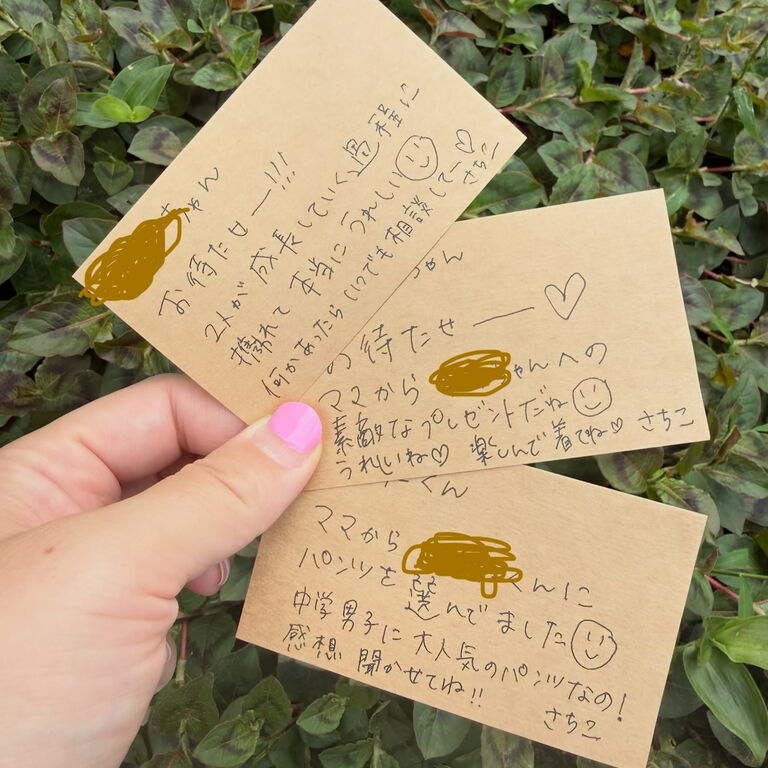 ちゃん
お待たせー!!!
2人が成長していく過程に
携われて本当にうれしい
何かあったらいつでも相談してー♡
さちこ
ちゃん
お待たせー♡
ママから ゃんへの
素敵なプレゼントだね
うれしいね♡ 楽しんで着てね♡ さちこ
くん
ママから くんに
パンツを選んでました
中学男子に大人気のパンツなの!
感想聞かせてね!!
さちこ